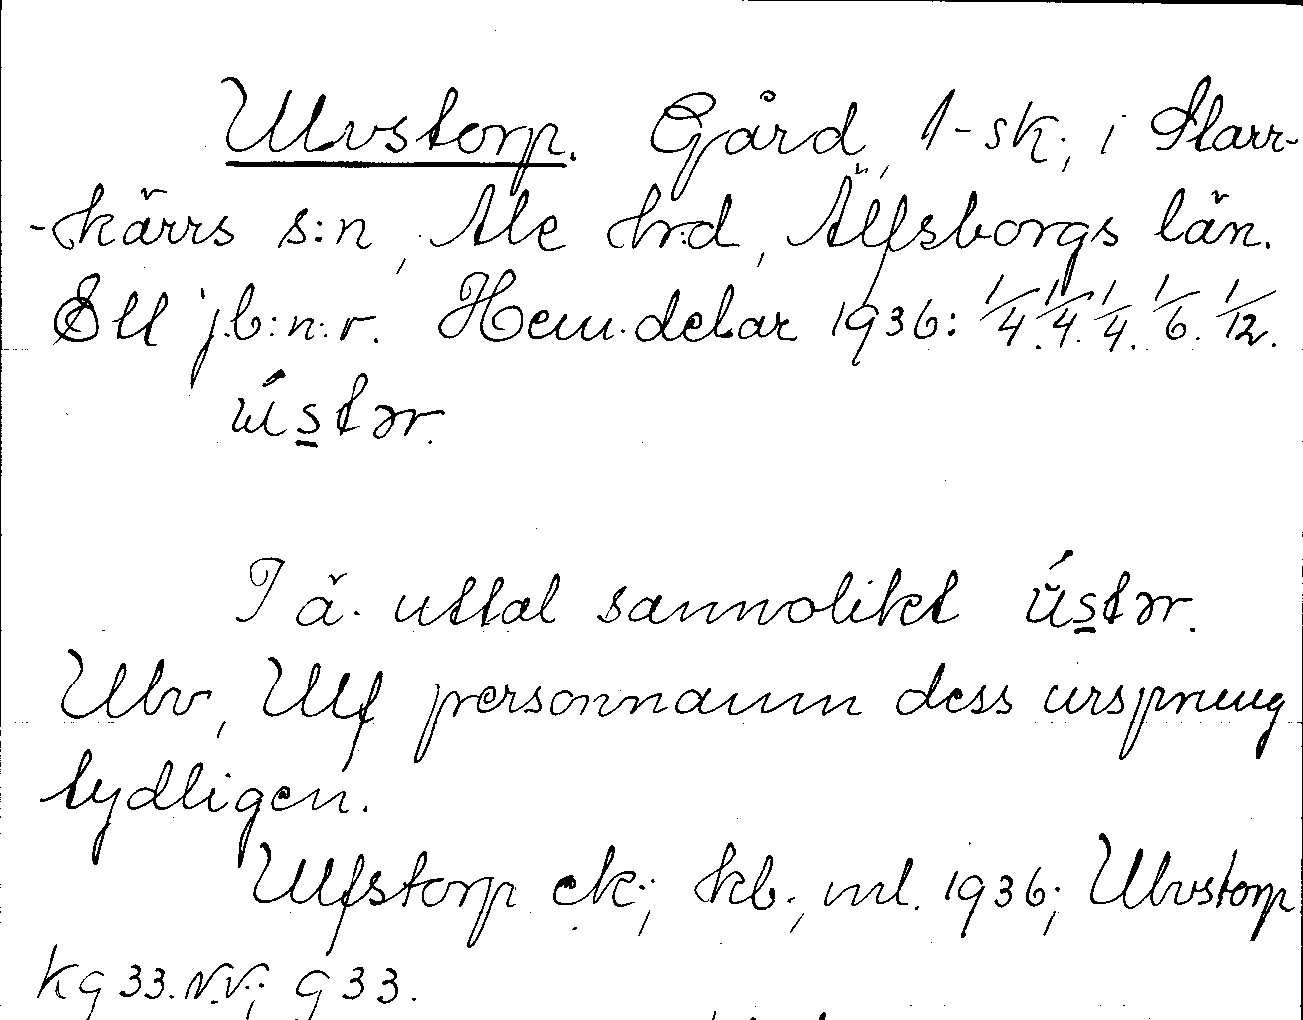 Ulvstorp. Gård, 1-sk., i Starr-
-kärrs s:n, Ale hrd, Älfsborgs län.
Ett j.b:n:r. Hem.delar 1936: 1/4. 1/4. 1/4. 1/6. 1/12.
ústər.
I ä. uttal sannolikt ústər.
Ulv, Ulf personnamn dess ursprung
tydligen.
Ulfstorp ek.; kb., ml. 1936; Ulvstorp
Kg 33. N.V.; g 33.